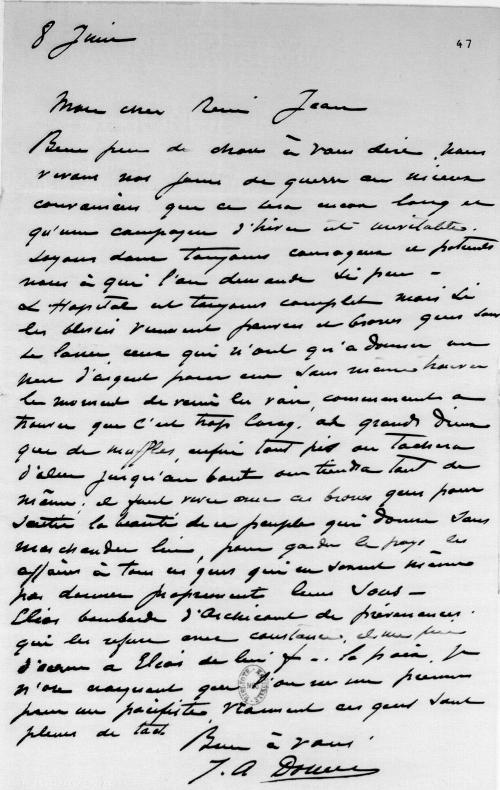 8 Juin
47
Mon cher René Jean
Bien peu de choses à vous dire, nous
vivons nos jours de guerre au mieux
convaincus que ce sera encore long et
qu'une campagne d'hiver est inévitable.
Soyons donc toujours courageux et patients
nous à qui l'on demande si peu —
L'Hopital est toujours complet mais si
les blessés viennent pauvres et braves gens sans
se lasser, ceux qui n'ont qu'à donner un
peu d'argent pour eux sans même trouver
le moment de venir les voir, commencent à
trouver que c'est trop long, ah grands dieux
que de muffles, enfin tant pis on tachera
d'aller jusqu'au bout on tiendra tout de
même; il faut vivre avec ces braves gens pour
sentir la beauté de ce peuple qui donne sans
marchander, pour garder le pays les
affaires à tous ces gens qui ne savent même
pas donner proprement leurs sous —
Elias bombarde d'Archicourt de prévenances
qui les refuse avec constance, il me prie
d'Elias de lui — la paix. Je
n'ose craignant que l'on ne me prenne
pour un pacifiste, vraiment ces gens sont
pleins de tact
Bien à vous
J. A